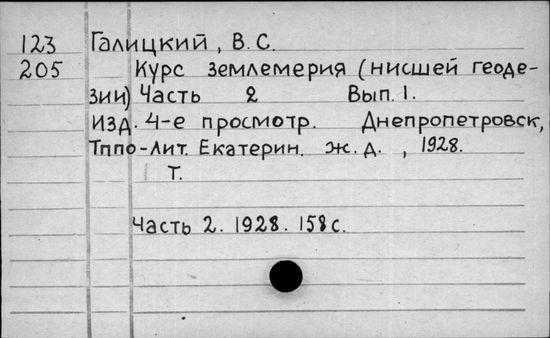 123 Галицкий, В.С.
205 Курс землемерия (нисшей геоде-
зии) Часть 2 Вып. 1.
Изд. 4-е просмотр. Днепропетровск,
Тппо-лит. Екатерин. ж.д., 1928.
Т.
Часть 2. 1928. 158 с.